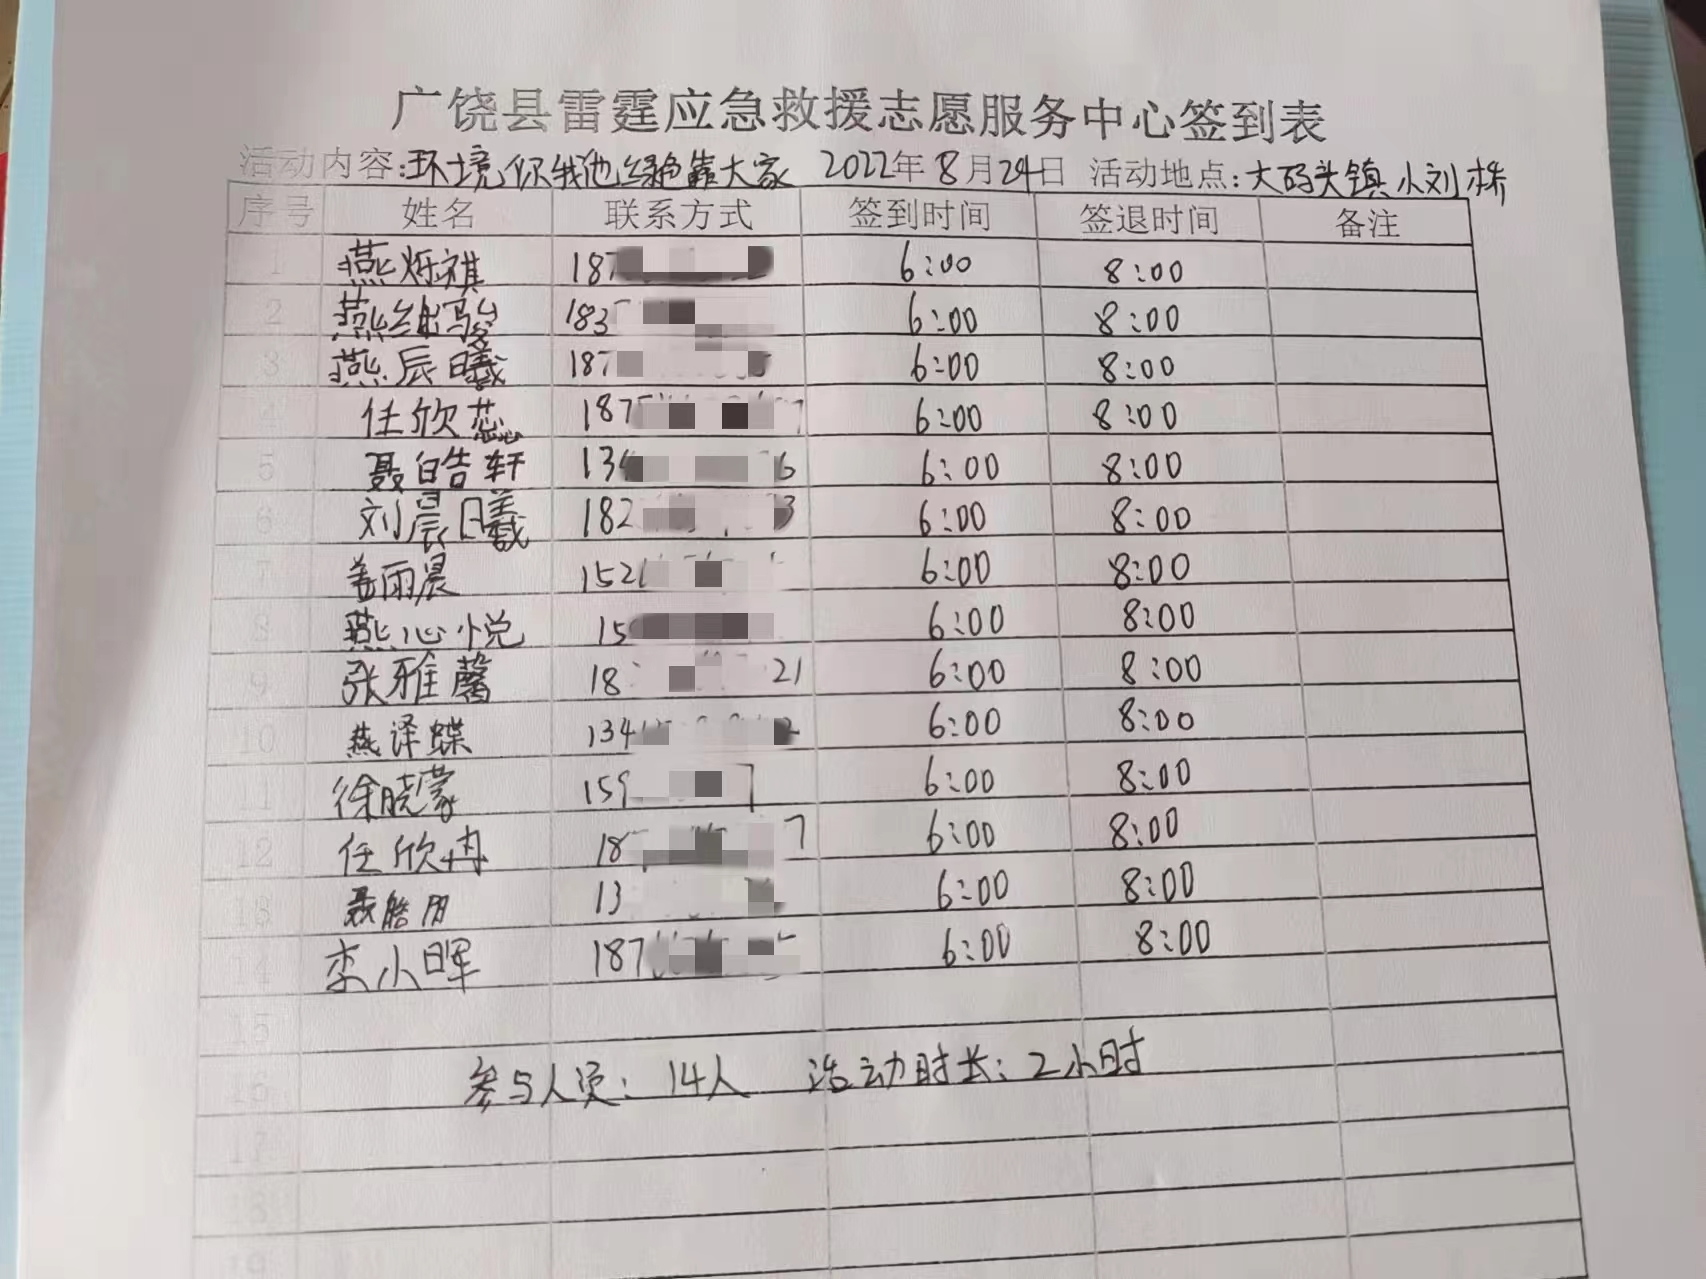 广饶县雷霆应急救援志愿服务中心签到表
活动内容:环境你我他绿色靠大家 2022年8月24日 活动地点:大码头镇小刘桥
序号 姓名 联系方式 签到时间 签退时间 备注
1 燕烁祺 187 6:00 8:00
2 燕继骏 183 6:00 8:00
3 燕辰曦 187 6:00 8:00
4 任欣蕊 187 6:00 8:00
5 聂皓轩 134 6 6:00 8:00
6 刘晨曦 182 3 6:00 8:00
7 姜雨晨 152 6:00 8:00
8 燕心悦 15 6:00 8:00
9 张雅馨 18 21 6:00 8:00
10 燕译蝶 134 6:00 8:00
11 徐晓蒙 159 6:00 8:00
12 任欣冉 18 7 6:00 8:00
13 13 6:00 8:00
14 李小晖 187 6:00 8:00
15
16 参与人员:14人 活动时长:2小时
17
18
19